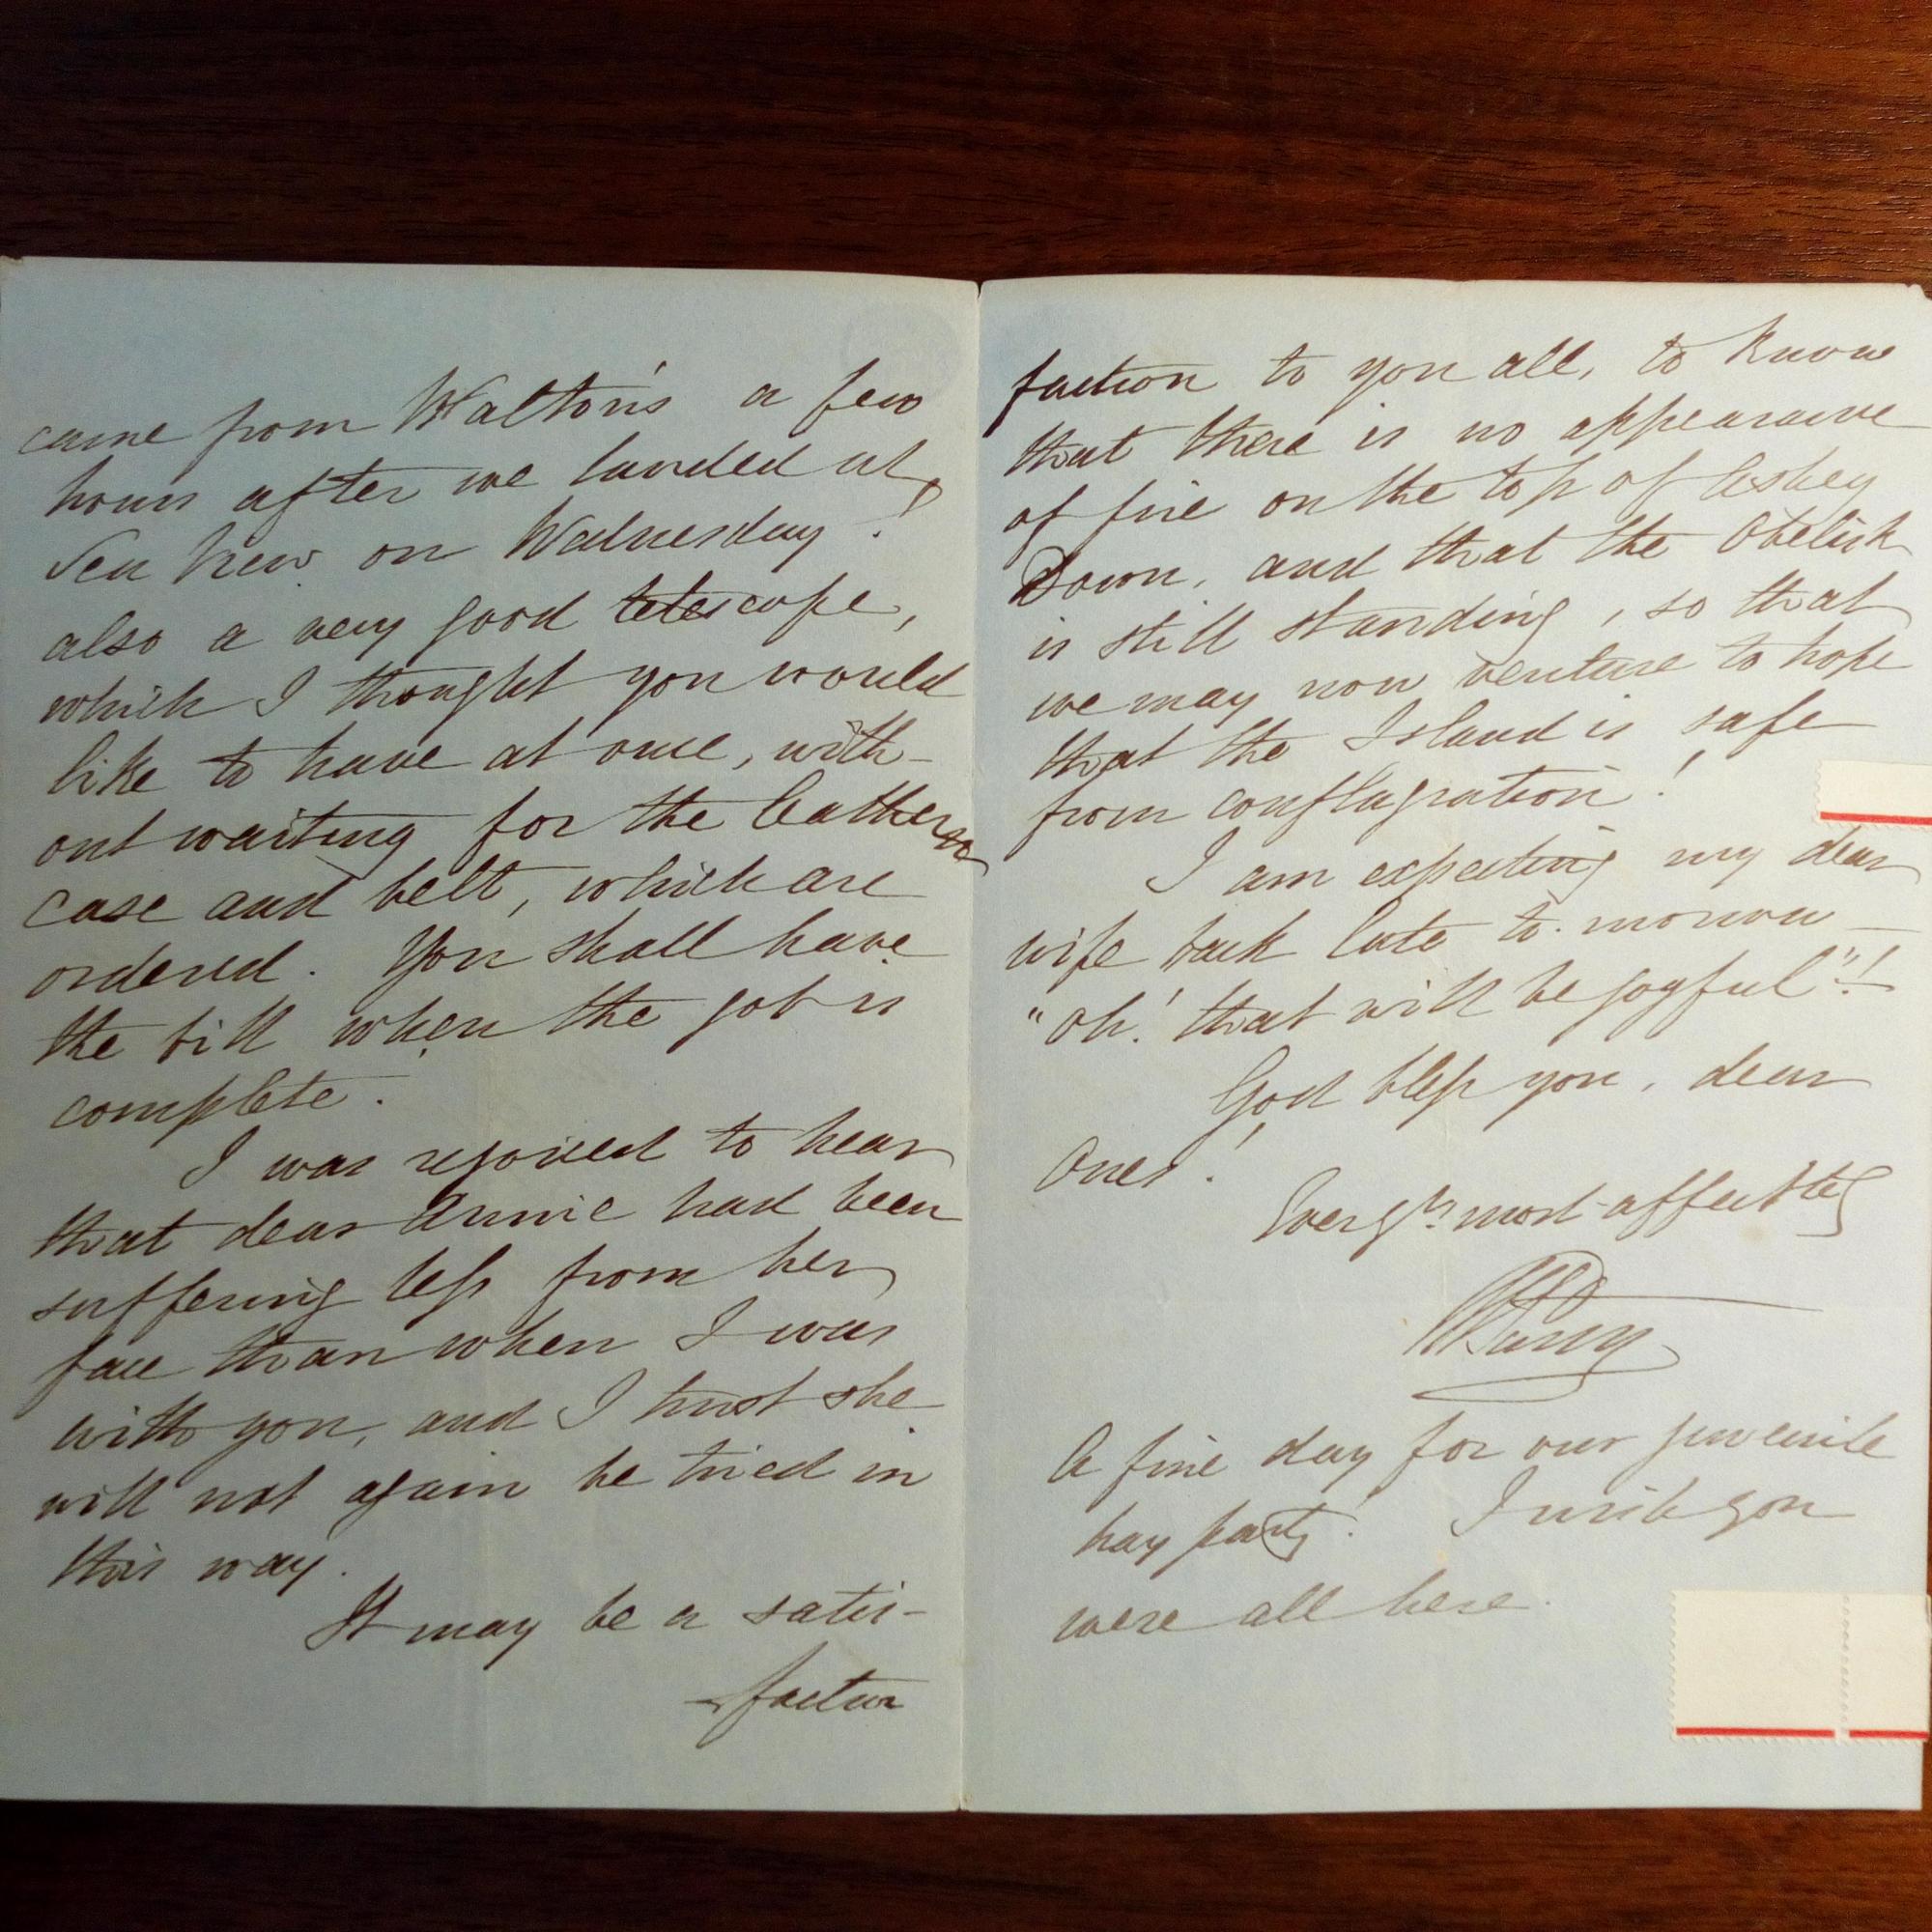 came from Walton's a few
hours after we landed at
Sea View on Wednesday!
also a very good telescope,
which I thought you would
like to have at once, with-
out waiting for the leathern
case and belt, which are
ordered. You shall have
the bill when the job is
complete.
I was rejoiced to hear
that dear Annie had been
suffering less from her
face than when I was
with you, and I trust she
will not again be tried in
this way.
It may be a satis-
faction
faction to you all, to know
that there is no appearance
of fire on the top of Ashey
Down, and that the Obelisk
is still standing, so that
we may now venture to hope
that the Island is safe
from conflagration!
I am expecting my dear
wife back late to-morrow -
"Oh! that will be joyful"!!
God bless you, dear
Ones!
Ever yrs most affectly
WEParry
A fine day for our juvenile
hay party! I wish you
were all here.